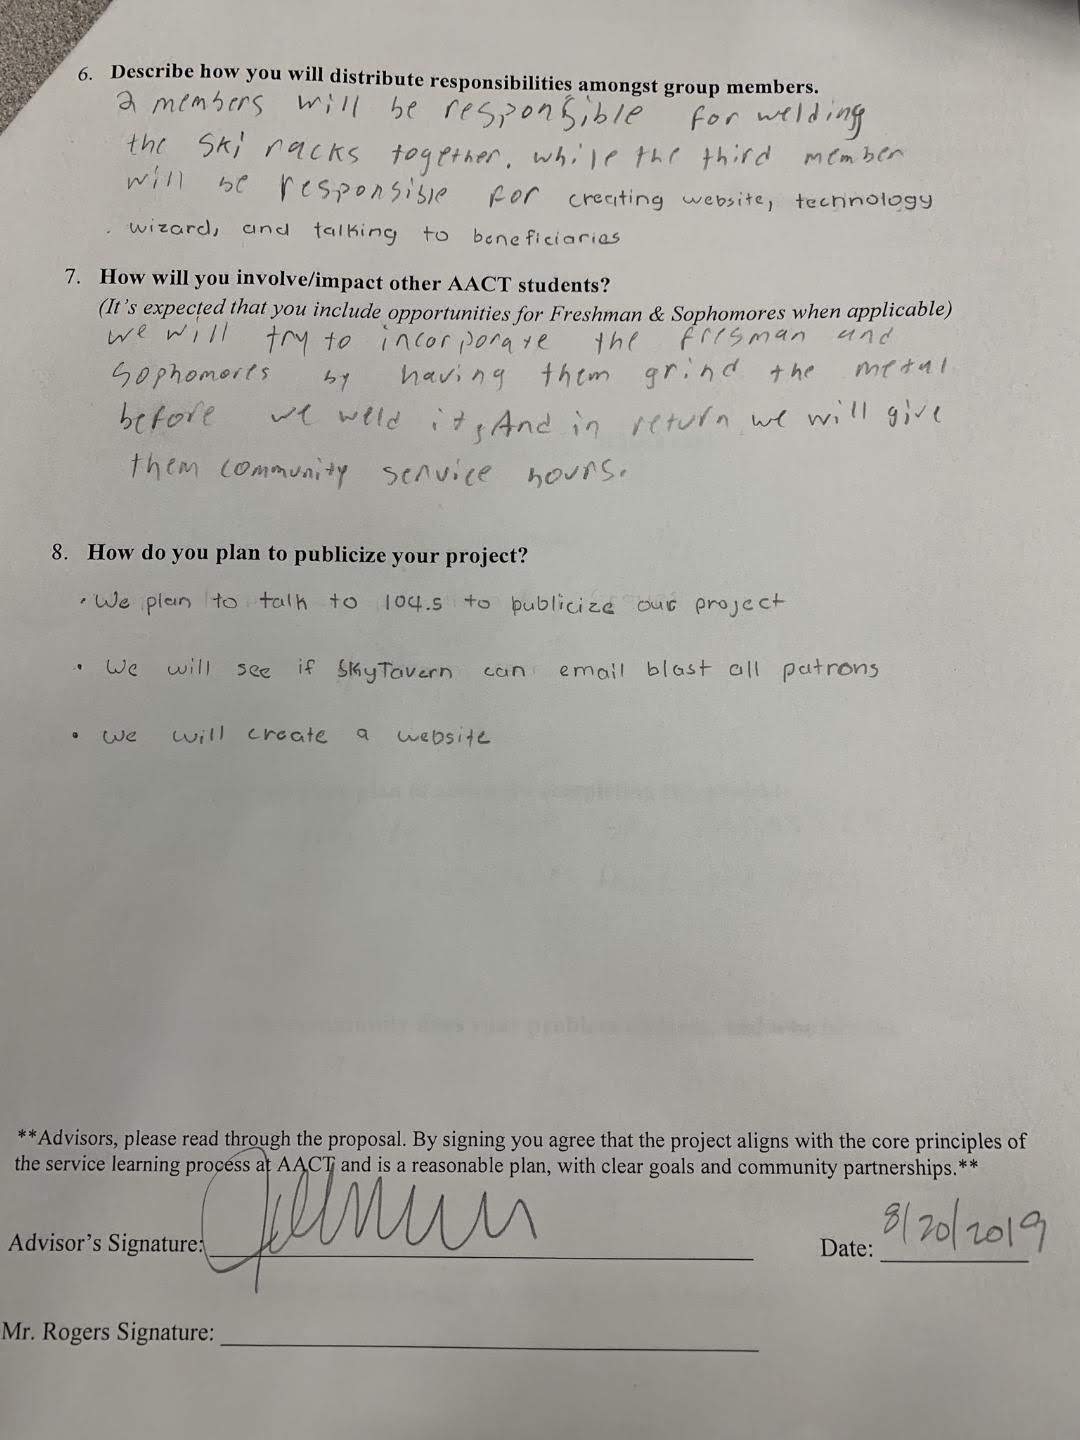 6. Describe how you will distribute responsibilities amongst group members.
2 members will be responsible for welding
the Ski racks together. while the third member
will be responsible for creating website, technology
wizard, and talking to beneficiaries
7. How will you involve/impact other AACT students?
(It's expected that you include opportunities for Freshman & Sophomores when applicable)
we will try to incorporate the fresman and
Sophomores by having them grind the metal
before we weld it, And in return we will give
them community service hours.
8. How do you plan to publicize your project?
• We plan to talk to 104.5 to publicize our project
• We will see if SkyTavern can email blast all patrons
• we will create a website
**Advisors, please read through the proposal. By signing you agree that the project aligns with the core principles of
the service learning process at AACT and is a reasonable plan, with clear goals and community partnerships.**
Advisor's Signature:
Date: 8/20/2019
Mr. Rogers Signature: